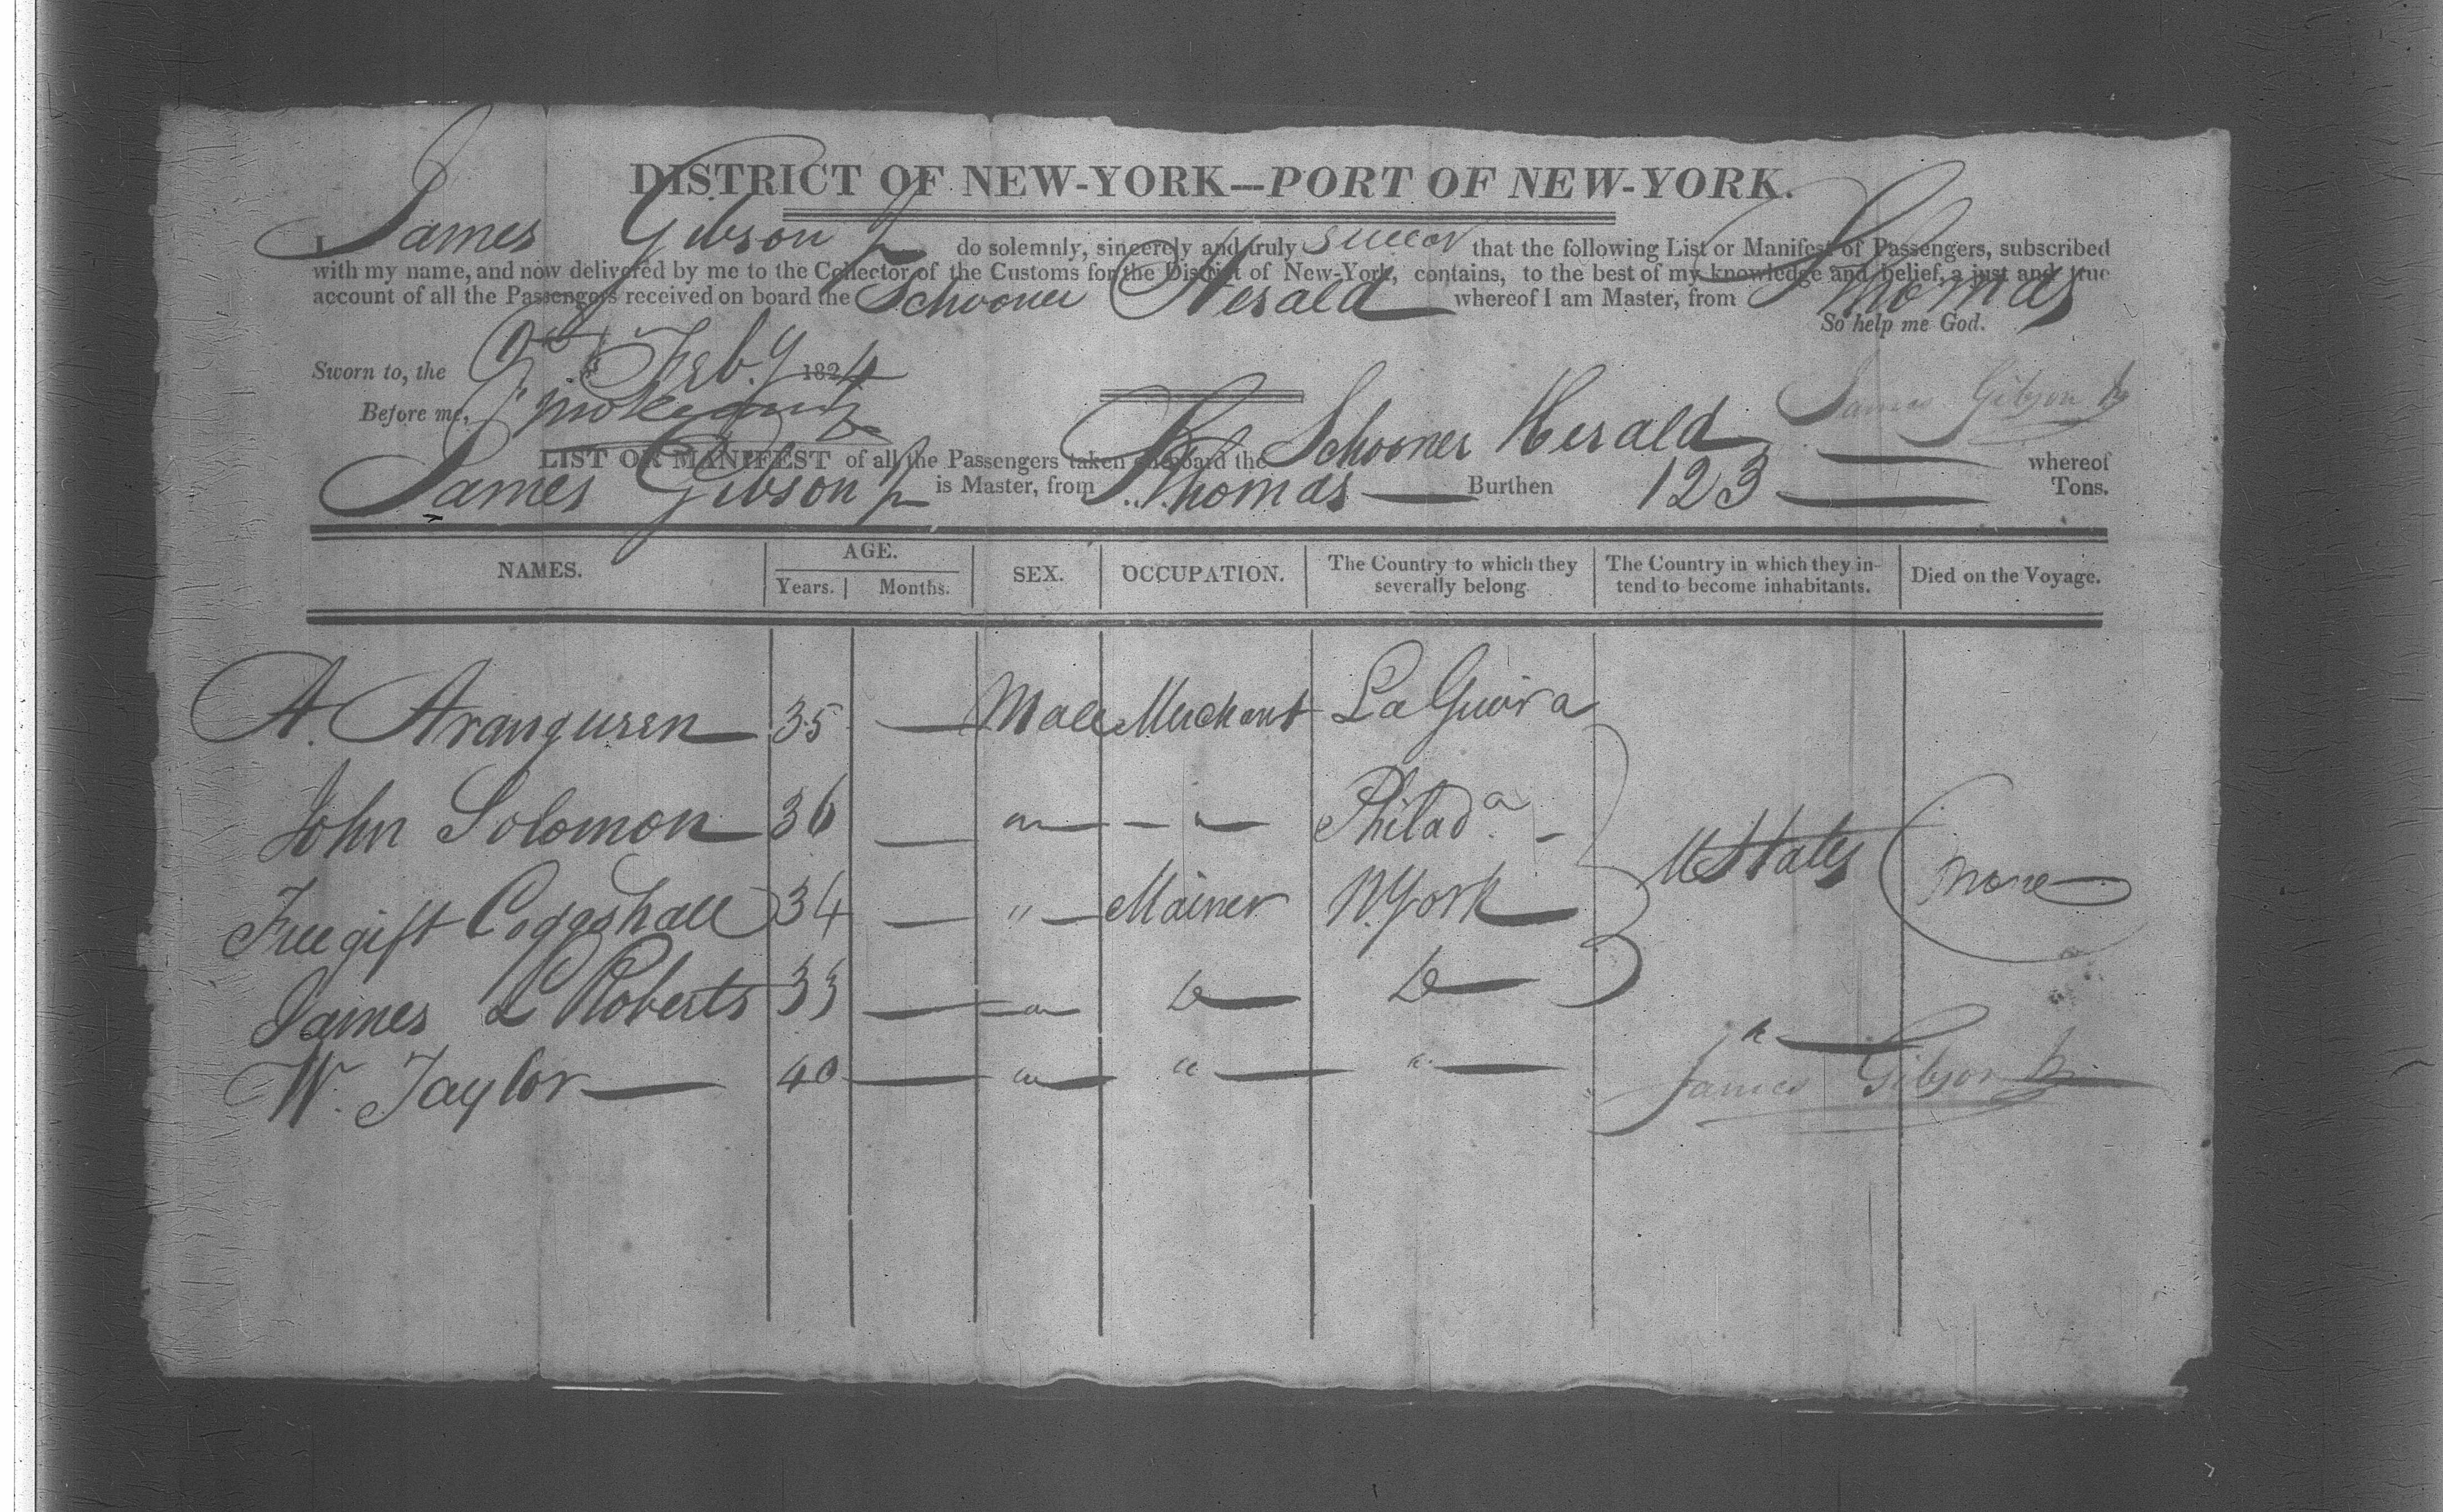 DISTRICT OF NEW-YORK—PORT OF NEW-YORK.
I James Gibson Jr do solemnly, sincerely and truly swear that the following List or Manifest of Passengers, subscribed
with my name, and now delivered by me to the Collector of the Customs for the District of New-York, contains, to the best of my knowledge and belief, a just and true
account of all the Passengers received on board the Schooner Herald whereof I am Master, from St Thomas
So help me God.
Sworn to, the 9th Feb.y 1824
James Gibson Jr
Before me,
LIST OR MANIFEST of all the Passengers taken on board the Schooner Herald whereof
James Gibson Jr is Master, from St Thomas Burthen 123 Tons.
NAMES. AGE. SEX. OCCUPATION. The Country to which they severally belong The Country in which they intend to become inhabitants. Died on the Voyage.
Years. Months.
A. Aranguren 35 — Male Merchant La Guira
John Solomon 36 — " — " — Philad.a —
Freegift Coggshall 34 — " — Mainer N.York U States none
James L Roberts 33 — " — Do — Do —
W. Taylor — 40 — " — " — " — "
James Gibson Jr